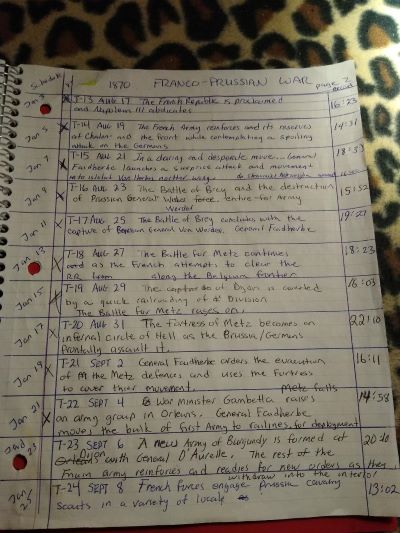 Schedule 1870 FRANCO-PRUSSIAN WAR page 2
Record
Jan 3 X T-13 AUG 17 The French Republic is proclaimed 16:23
and Napoleon III abdicates
Jan 5 X T-14 AUG 19 The French Army reinforces and its reserves 14:31
at Chalon and the front while contemplating a spoiling
attack on the Germans
Jan 7 X T-15 AUG 21 In a daring and desperate move.. General 18:53
Faidherbe launches a surprise attack and movement
into
Jan 9 X T-16 AUG 23 The Battle of Brey and the destruction 15:52
of Prussian General force. entire-for Army
Jan 11 X T-17 AUG 25 The Battle of Brey concludes with the 19:27
capture of General Von Werder. General Faidherbe
Jan 13 X T-18 AUG 27 The Battle for Metz continues 18:23
and as the French attempts to clear the
R.R. from along the Belgium frontier
Jan 15 X T-19 AUG 29 The of Dijon is covered 16:03
by a quick railroading of a Division
The Battle for Metz rages on.
Jan 17 X T-20 AUG 31 The fortress of Metz becomes an 22:10
infernal circle of Hell as the Prussian/Germans
Painfully assault it.
Jan 19 X T-21 SEPT 2 General Faidherbe orders the evacuation 16:11
of the Metz defences and uses the Fortress
to cover their movement. Metz falls
Jan 21 X T-22 SEPT 4 War Minister Gambetta raises 14:58
an army group in Orleans. General Faidherbe
moves the bulk of first Army to railines for deployment
Jan 23 T-23 SEPT 6 A new Army of Burgundy is formed at 20:20
Dijon with General D'Aurelle. The rest of the
army reinforces and readies for new orders as they
withdraw into the interior
Jan T-24 SEPT 8 French forces engage Prussia cavalry 13:02
Scouts in a variety of locale